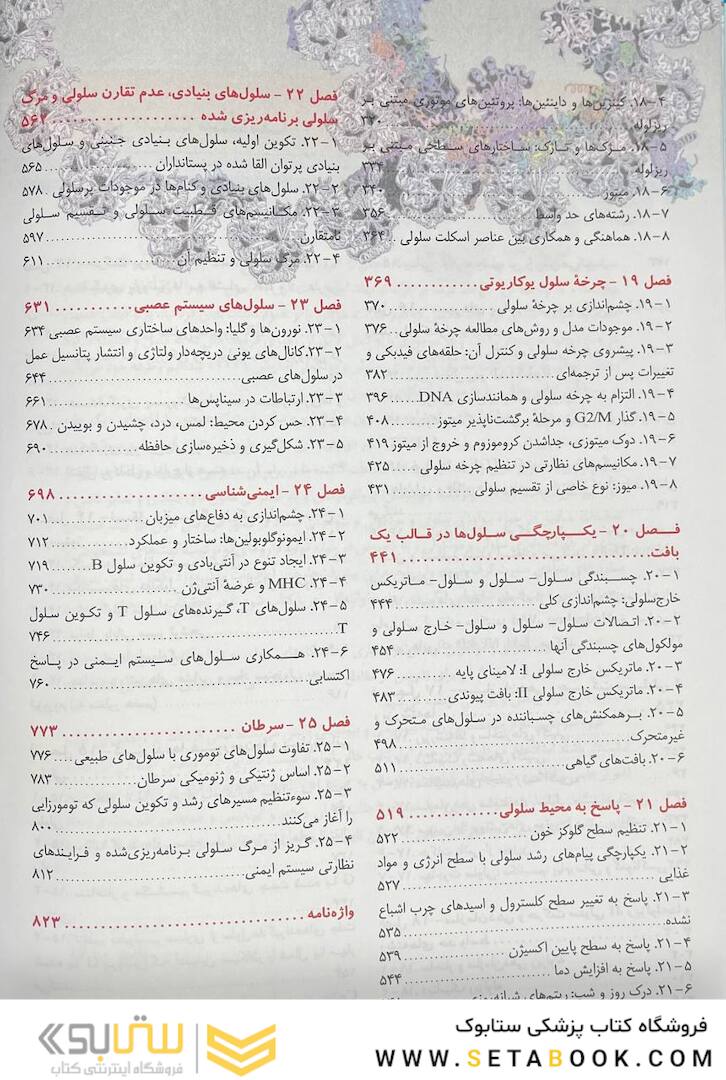 ۱۸-۴. کینزین‌ها و داینئین‌ها: پروتئین‌های موتوری مبتنی بر
ریزلوله ................ ۳۲۰
۱۸-۵. مژک‌ها و تاژک: ساختارهای سطحی مبتنی بر
ریزلوله ................ ۳۳۴
۱۸-۶. میتوز ................ ۳۴۰
۱۸-۷. رشته‌های حد واسط ................ ۳۵۶
۱۸-۸. هماهنگی و همکاری بین عناصر اسکلت سلولی .. ۳۶۴
فصل ۱۹ - چرخهٔ سلول یوکاریوتی ............ ۳۶۹
۱۹-۱. چشم‌اندازی بر چرخهٔ سلولی ................ ۳۷۰
۱۹-۲. موجودات مدل و روش‌های مطالعه چرخهٔ سلولی.. ۳۷۶
۱۹-۳. پیشروی چرخه سلولی و کنترل آن: حلقه‌های فیدبکی و
تغییرات پس از ترجمه‌ای ................ ۳۸۲
۱۹-۴. التزام به چرخه سلولی و همانندسازی DNA ...... ۳۹۶
۱۹-۵. گذار G2/M و مرحلهٔ برگشت‌ناپذیر میتوز ...... ۴۰۸
۱۹-۶. دوک میتوزی، جداشدن کروموزوم و خروج از میتوز ۴۱۹
۱۹-۷. مکانیسم‌های نظارتی در تنظیم چرخه سلولی ..... ۴۲۵
۱۹-۸. میوز: نوع خاصی از تقسیم سلولی ............ ۴۳۱
فـصل ۲۰ - یـکـپارچـگـی سـلول‌ها در قـالب یک
بافت ................ ۴۴۱
۲۰-۱. چسبندگی سلول- سلول و سلول- ماتریکس
خارج‌سلولی: چشم‌اندازی کلی ................ ۴۴۴
۲۰-۲. اتـصالات سلول- سلول و سلول- خـارج سلولی و
مولکول‌های چسبندگی آنها ................ ۴۵۴
۲۰-۳. ماتریکس خارج سلولی I: لامینای پایه ....... ۴۷۶
۲۰-۴. ماتریکس خارج سلولی II: بافت پیوندی ....... ۴۸۳
۲۰-۵. بـرهمکنش‌های چسباننده در سلول‌های متحرک و
غیرمتحرک ................ ۴۹۸
۲۰-۶. بافت‌های گیاهی ................ ۵۱۱
فصل ۲۱ - پاسخ به محیط سلولی ............ ۵۱۹
۲۱-۱. تنظیم سطح گلوکز خون ................ ۵۲۲
۲۱-۲. یکپارچگی پیام‌های رشد سلولی با سطح انرژی و مواد
غذایی ................ ۵۲۷
۲۱-۳. پاسخ به تغییر سطح کلسترول و اسیدهای چرب اشباع
نشده ................ ۵۳۵
۲۱-۴. پاسخ به سطح پایین اکسیژن ................ ۵۳۹
۲۱-۵. پاسخ به افزایش دما ................ ۵۴۴
۲۱-۶. درک روز و شب: ریتم‌های شبانه‌روزی
فصل ۲۲ - سلول‌های بنیادی، عدم تقارن سلولی و مرگ
سلولی برنامه‌ریزی شده ................ ۵۶۲
۲۲-۱. تکوین اولیه، سلول‌های بنیادی جنینی و سلول‌های
بنیادی پرتوان القا شده در پستانداران ............ ۵۶۵
۲۲-۲. سلول‌های بنیادی و کنام‌ها در موجودات پرسلولی . ۵۷۸
۲۲-۳. مکـانیسم‌های قـطبیت سـلولی و تـقسیم سـلولی
نامتقارن ................ ۵۹۷
۲۲-۴. مرگ سلولی و تنظیم آن ................ ۶۱۱
فصل ۲۳ - سلول‌های سیستم عصبی ........... ۶۳۱
۲۳-۱. نورون‌ها و گلیا: واحدهای ساختاری سیستم عصبی ۶۳۴
۲۳-۲. کانال‌های یونی دریچه‌دار ولتاژی و انتشار پتانسیل عمل
در سلول‌های عصبی ................ ۶۴۴
۲۳-۳. ارتباطات در سیناپس‌ها ................ ۶۶۱
۲۳-۴. حس کردن محیط: لمس، درد، چشیدن و بوییدن . ۶۷۸
۲۳-۵. شکل‌گیری و ذخیره‌سازی حافظه ............ ۶۹۰
فصل ۲۴ - ایمنی‌شناسی ................ ۶۹۸
۲۴-۱. چشم‌اندازی به دفاع‌های میزبان ............ ۷۰۱
۲۴-۲. ایمونوگلوبولین‌ها: ساختار و عملکرد ........ ۷۱۲
۲۴-۳. ایجاد تنوع در آنتی‌بادی و تکوین سلول B ....... ۷۱۹
۲۴-۴. MHC و عرضهٔ آنتی‌ژن ................ ۷۳۰
۲۴-۵. سلول‌های T، گیرنده‌های سلول T و تکوین سلول
T ................ ۷۴۶
۲۴-۶. هـمـکاری سلول‌های سیستم ایمنی در پـاسخ
اکتسابی ................ ۷۶۰
فصل ۲۵ - سرطان ................ ۷۷۳
۲۵-۱. تفاوت سلول‌های توموری با سلول‌های طبیعی .... ۷۷۶
۲۵-۲. اساس ژنتیکی و ژنومیکی سرطان ............ ۷۸۳
۲۵-۳. سوءتنظیم مسیرهای رشد و تکوین سلولی که تومورزایی
را آغاز می‌کنند ................ ۸۰۰
۲۵-۴. گریز از مـرگ سـلولی برنامه‌ریزی‌شده و فرایندهای
نظارتی سیستم ایمنی ................ ۸۱۲
واژه‌نامه ................ ۸۲۳
فروشگاه کتاب پزشکی ستابوک
WWW.SETABOOK.COM
ستابوک
فروشگاه اینترنتی کتاب